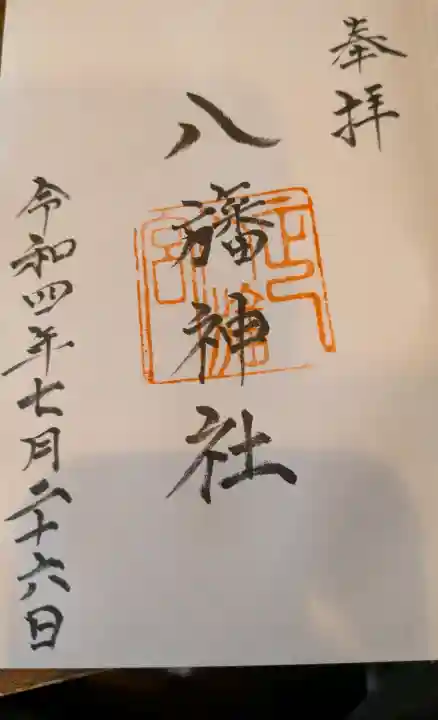 奉拝
八幡神社
令和四年七月二十六日